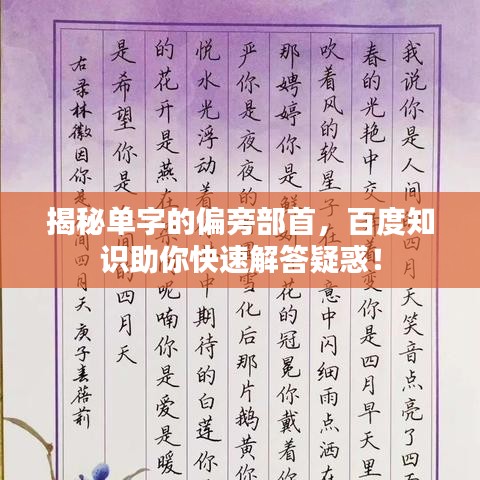 揭秘单字的偏旁部首，百度知
识助你快速解答疑惑！
我说你是人间四月天笑音点亮了
春的光艳中交你是四月早天
吹着风的软星子在意中闪细雨点洒在
那娉婷你是花的冠冕你戴着
严你是夜夜的雪化后那片鹅黄你
悦水光浮动着中期待的白莲你
的花开是燕在呢喃你是爱是暖
是希望你是的四月天
右录林徽因你是间四月天庚子春蓓莉